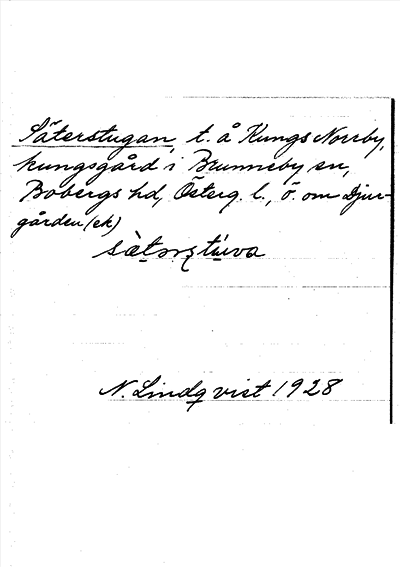 Säterstugan, t. å Kungs Norrby,
kungsgård i Brunneby sn,
Bobergs hd, Österg. l., ö. om Djur-
gården (ek)
N. Lindqvist 1928